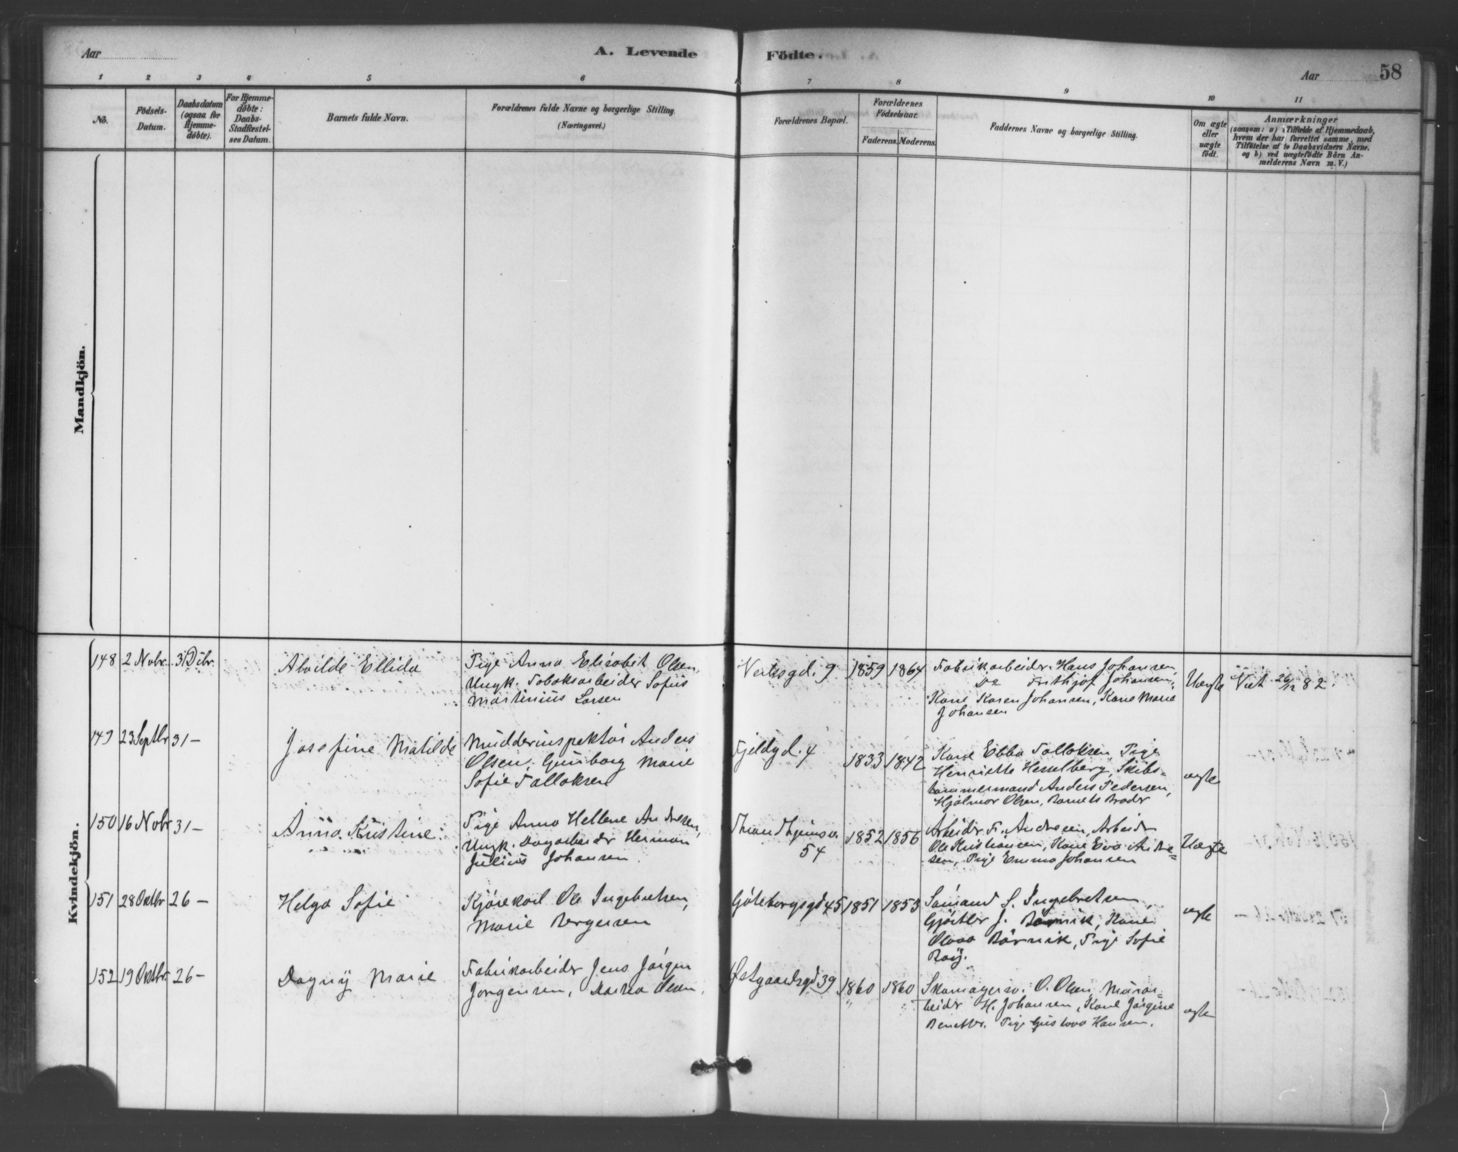 Aar
A. Levende Födte.
Aar
58
1 2 3 4 5 6 7 8 9 10 11
No.
Födsels-
Datum.
Daabsdatum
(ogsaa for
Hjemme-
døbte).
For Hjemme-
døbte:
Daabs-
Stadfæstel-
ses Datum.
Barnets fulde Navn.
Forældrenes fulde Navne og borgerlige Stilling.
(Næringsvei.)
Forældrenes Bopæl.
Forældrenes
Födselsaar.
Faderens. Moderens.
Faddernes Navne og borgerlige Stilling.
Om ægte
eller
uægte
født.
Anmærkninger
(saasom: a) i Tilfælde af Hjemmedaab,
hvem der har forrettet samme, med
Tilføielse af to Daabsvidners Navne,
og b) ved uægtefødte Børn An-
melderens Navn m. V.)
Mandkjön.
Kvindekjön.
148 2 Novbr. 31 Dcbr.
Alvilde Ellida
Pige Anna Elisabet Olsen,
Ungk. Tobaksarbeider Sofus
Martinius Larsen
9
1859 1864
Fabrikarbeider Hans Johansen
Do Frithjof Johansen,
Kone Karen Johansen, Kone Marie
Johansen
Uægte
26/12 82.
149 23 Septbr 31 –
Josefine Matilde
Mudderinspektør Anders
Olsen, Gunborg Marie
Sofie Falloksen
Fjeldgd. 4
1833 1842
Kone Ebba Falloksen, Pige
Henriette Hesselberg, Skibs-
tømmermand Anders Pedersen,
Hjalmar Olsen, Barnets Broder
ægte
150 16 Novbr 31 –
Anna Kristine
Pige Anna Hellene Andresen,
Ungk. Dagarbeider Herman
Julius Johansen
Trondhjemsv.
54
1852 1856
Arbeider Fr. Andresen, Arbeider
Ole Kristiansen, Kone Eva Andre-
sen, Pige Emma Johansen
Uægte
151 28 Oktbr 26 –
Helga Sofie
Kjørekarl Ole Ingebretsen,
Marie Bergersen
Göteborggd 45
1851 1853
Sømand S. Ingebretsen
Gjørtler J. Kone
Olava Børnick, Pige Sofie
ægte
152 19 Oktbr 26 –
Dagny Marie
Fabrikarbeider Jens Jørgen
Jørgensen, Olsen.
Østgaardsgd 39
1860 1860
Skomagersv. O. Olsen, Murar-
beider H. Johansen, Kone Jørgine
Pige Gustava Hansen.
ægte